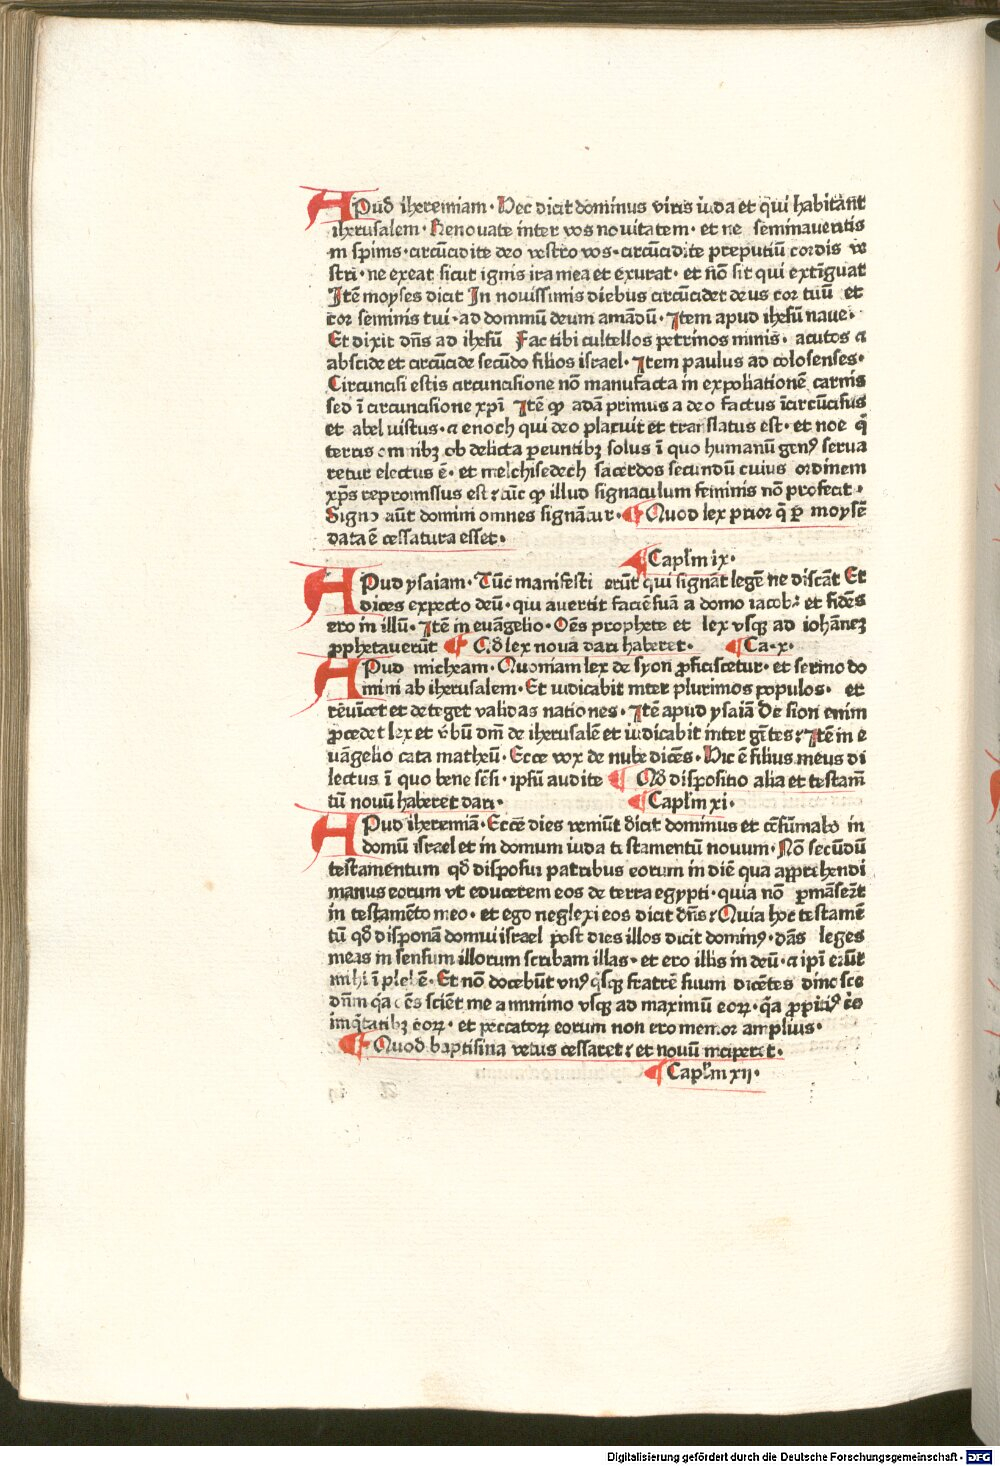 Apud iheremiam · Hec dicit dominus viris iuda et qui habitant
iherusalem · Renouate inter vos nouitatem · et ne seminaueritis
in spinis · circūcidite deo vestro vos · circūcidite preputiū cordis ve
stri · ne exeat sicut ignis ira mea et exurat · et nō sit qui extīguat
Itē moyses dicit In nouissimis diebus circūcidet deus cor tuū et
cor seminis tui · ad dominū deum amādū · Item apud ihesū naue ·
Et dixit dn̄s ad ihesū Fac tibi cultellos petrinos nimis · acutos ⁊
abscide et circūcide secūdo filios israel · Item paulus ad colosenses ·
Circuncisi estis circuncisione nō manufacta in expoliationē carnis
sed ī circuncisione xp̄i Itē ꝙ adā primus a deo factus īcircūcisus
et abel iustus · ⁊ enoch qui deo placuit et translatus est · et noe q̄
terris omnibꝫ ob delicta ꝑeuntibꝫ solus ī quo humanū genꝰ serua
retur electus ē · et melchisedech sacerdos secundū cuius ordinem
xp̄s repromissus est : tūc ꝙ illud signaculum feminis nō proficit ·
Signo aūt domini omnes signātur · ¶ Quod lex prior q̄ ꝑ moysē
data ē cessatura esset ·
¶ Capl̄m ix ·
APud ysaiam · Tūc manifesti erūt qui signāt legē ne discāt Et
dices expecto deū · qui auertit faciē suā a domo iacob : et fidēs
ero in illū · Itē in euāgelio · Oēs prophete et lex vsqꝫ ad iohānez
ꝓphetauerūt ¶ Qd̄ lex noua dari haberet · ¶ Ca · x ·
APud micheam · Quoniam lex de syon ꝓficiscetur · et sermo do
mini ab iherusalem · Et iudicabit inter plurimos populos · et
reuīcet et deteget validas nationes · Itē apud ysaiā De sion enim
ꝓcedet lex et v̄bū dn̄i de iherusalē et iudicabit inter gētes : Itē in e
uāgelio cata matheū · Ecce vox de nube dicēs · Hic ē filius meus di
lectus ī quo bene sēsi · ipsū audite ¶ Qd̄ dispositio alia et testam̄
tū nouū haberet dari · ¶ Capl̄m xi ·
APud iheremiā · Ecce dies veniūt dicit dominus et cōsūmabo in
domū israel et in domum iuda testamentū nouum · Nō secūdū
testamentum qd̄ disposui patribus eorum in diē qua appr̄hendi
manus eorum vt educerem eos de terra egypti · quia nō ꝑmāserūt
in testamēto meo · et ego neglexi eos dicit dn̄s : Quia hoc testamē
tū qd̄ disponā domui israel post dies illos dicit dominꝰ · dās leges
meas in sensum illorum scribam illas · et ero illis in deū · ⁊ ip̄i erūt
mihi ī plebē · Et nō docebūt vnꝰqisqꝫ fratrē suum dicētes dinosce
dn̄m q̄a oēs sciēt me a minimo vsqꝫ ad maximū eoꝝ · q̄a ꝓpitiꝰ ero
iniq̄tatibꝫ eoꝝ · et peccatoꝝ eorum non ero memor amplius ·
¶ Quod baptisma vetus cessaret : et nouū inciperet ·
¶ Capl̄m xii ·
Digitalisierung gefördert durch die Deutsche Forschungsgemeinschaft - DFG